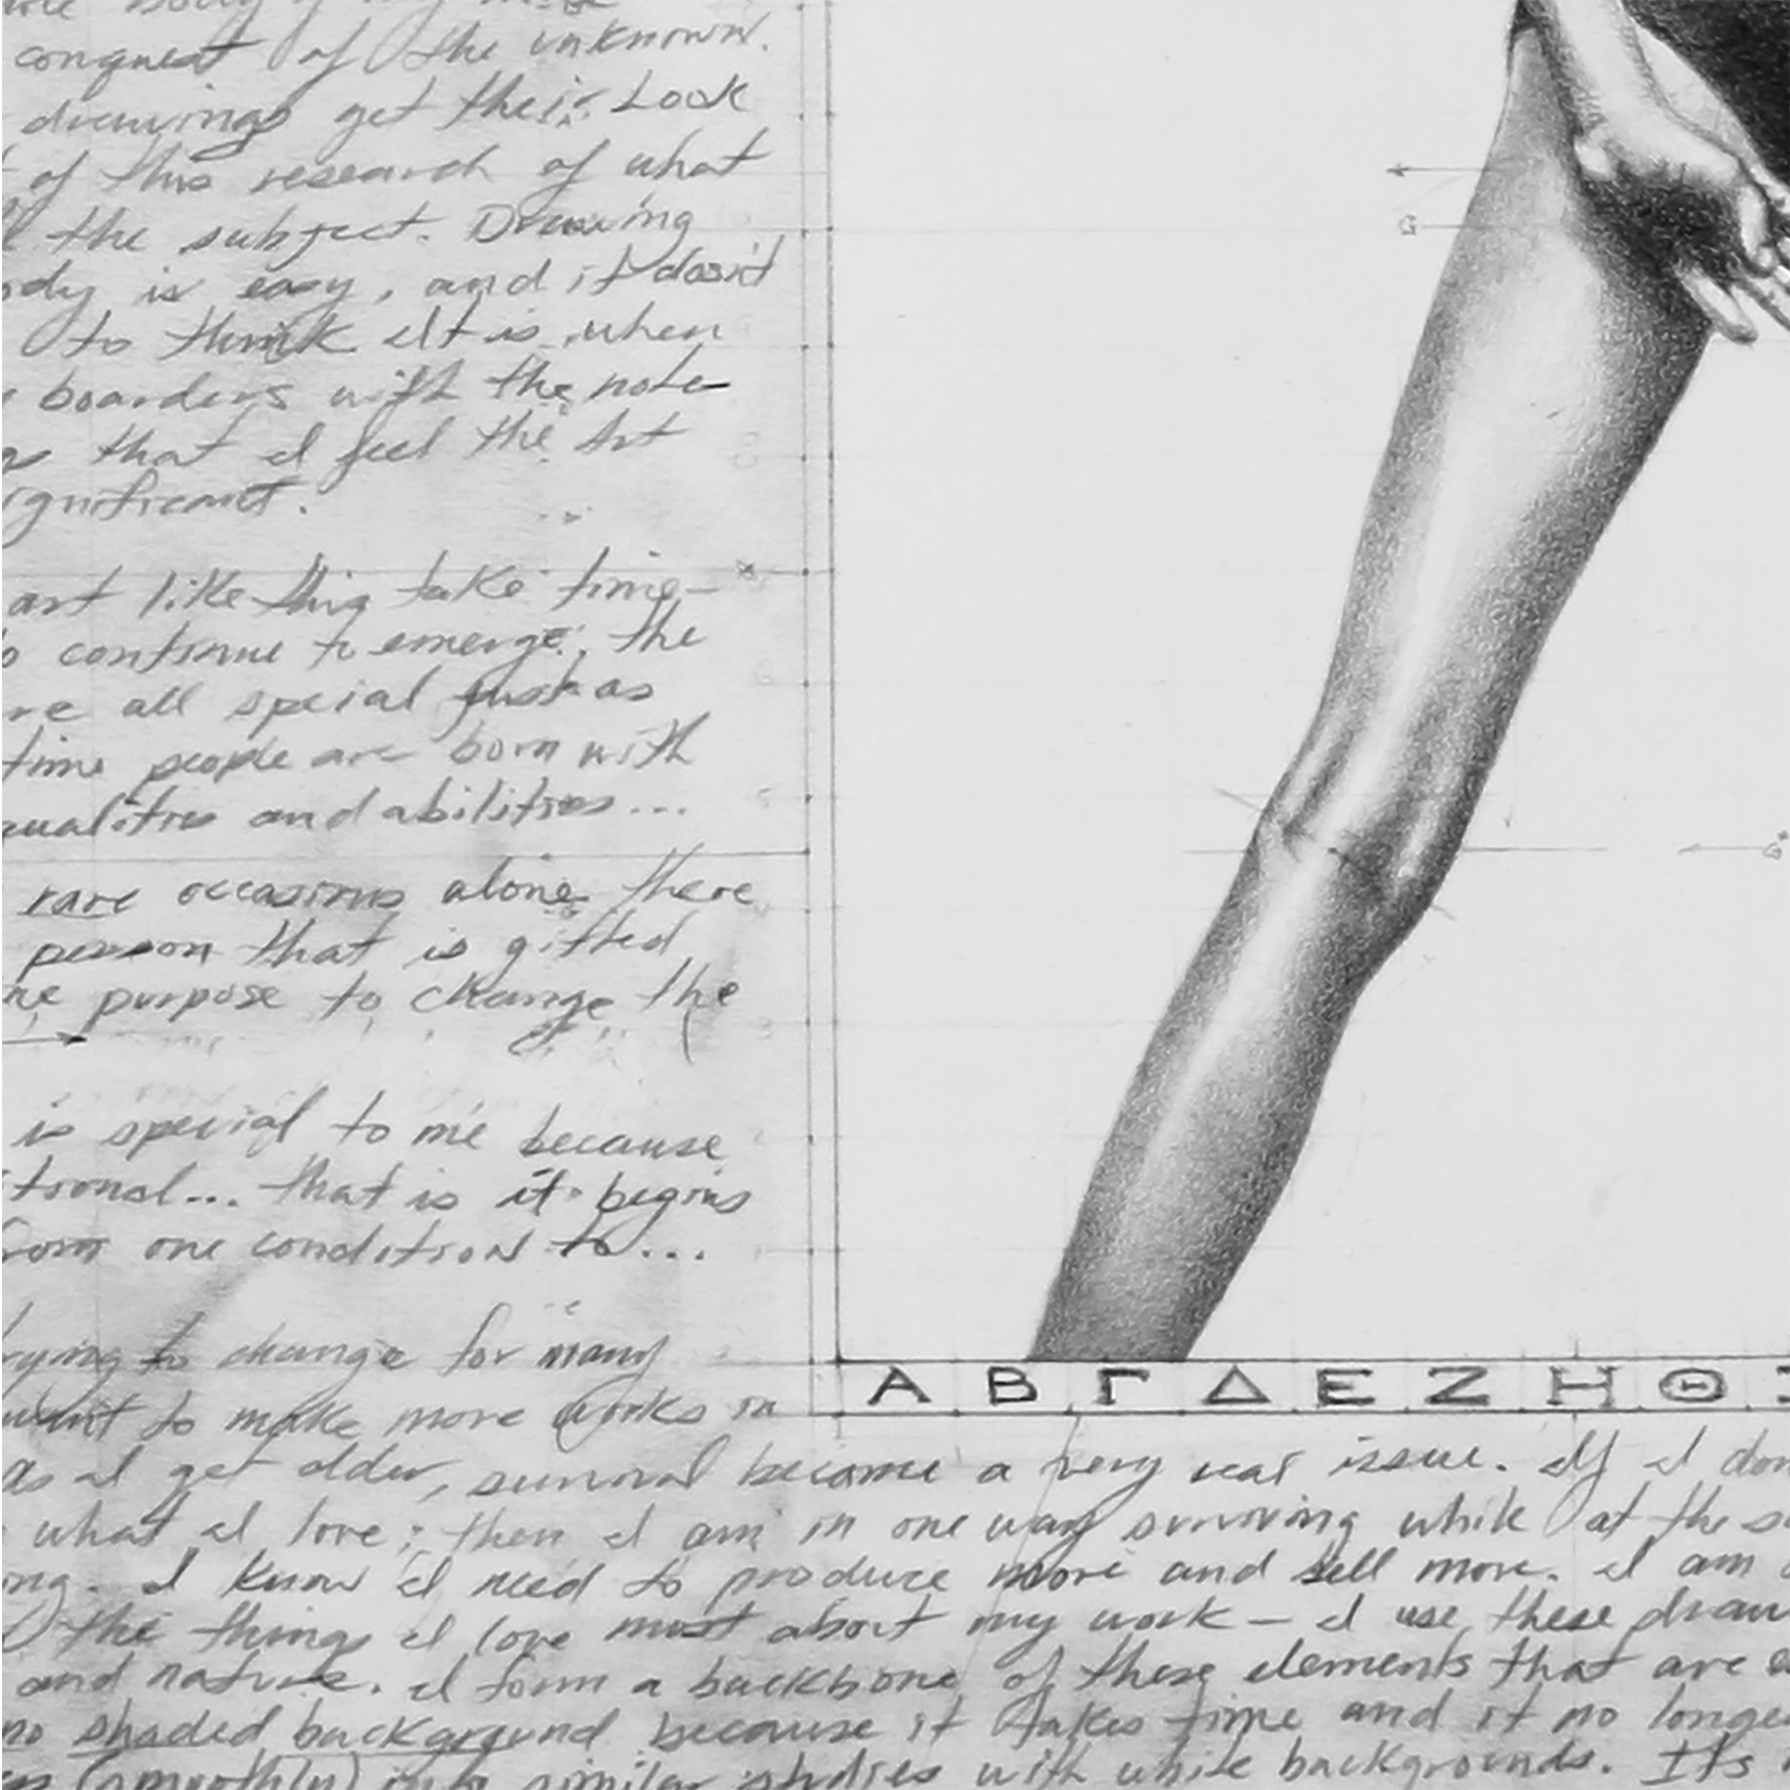 conquest of the unknown.
drawings get their Look
of this research of what
the subject. Drawing
ody is easy, and it dosn't
to think It is when
boarders with the note
that I feel the Art
ignificant.
art like this take time-
o continue to emerge. the
re all special just as
time people are born with
qualities and abilities...
rare occasions alone there
person that is gifted
ne purpose to change the
is special to me because
itional... that is it begins
from one condition to...
rying to change for many
want to make more works in
Α Β Γ Δ Ε Ζ Η Θ
as I get older, survival become a very real issue. If I don
what I love; then I am in one way surviving while at the s
ong. I know I need to produce more and sell more. I am
the things I love most about my work - I use these draw
and nature. I form a backbone of these elements that are
no shaded background because it takes time and it no longe
(smoothly) into similar studies with white backgrounds. Its